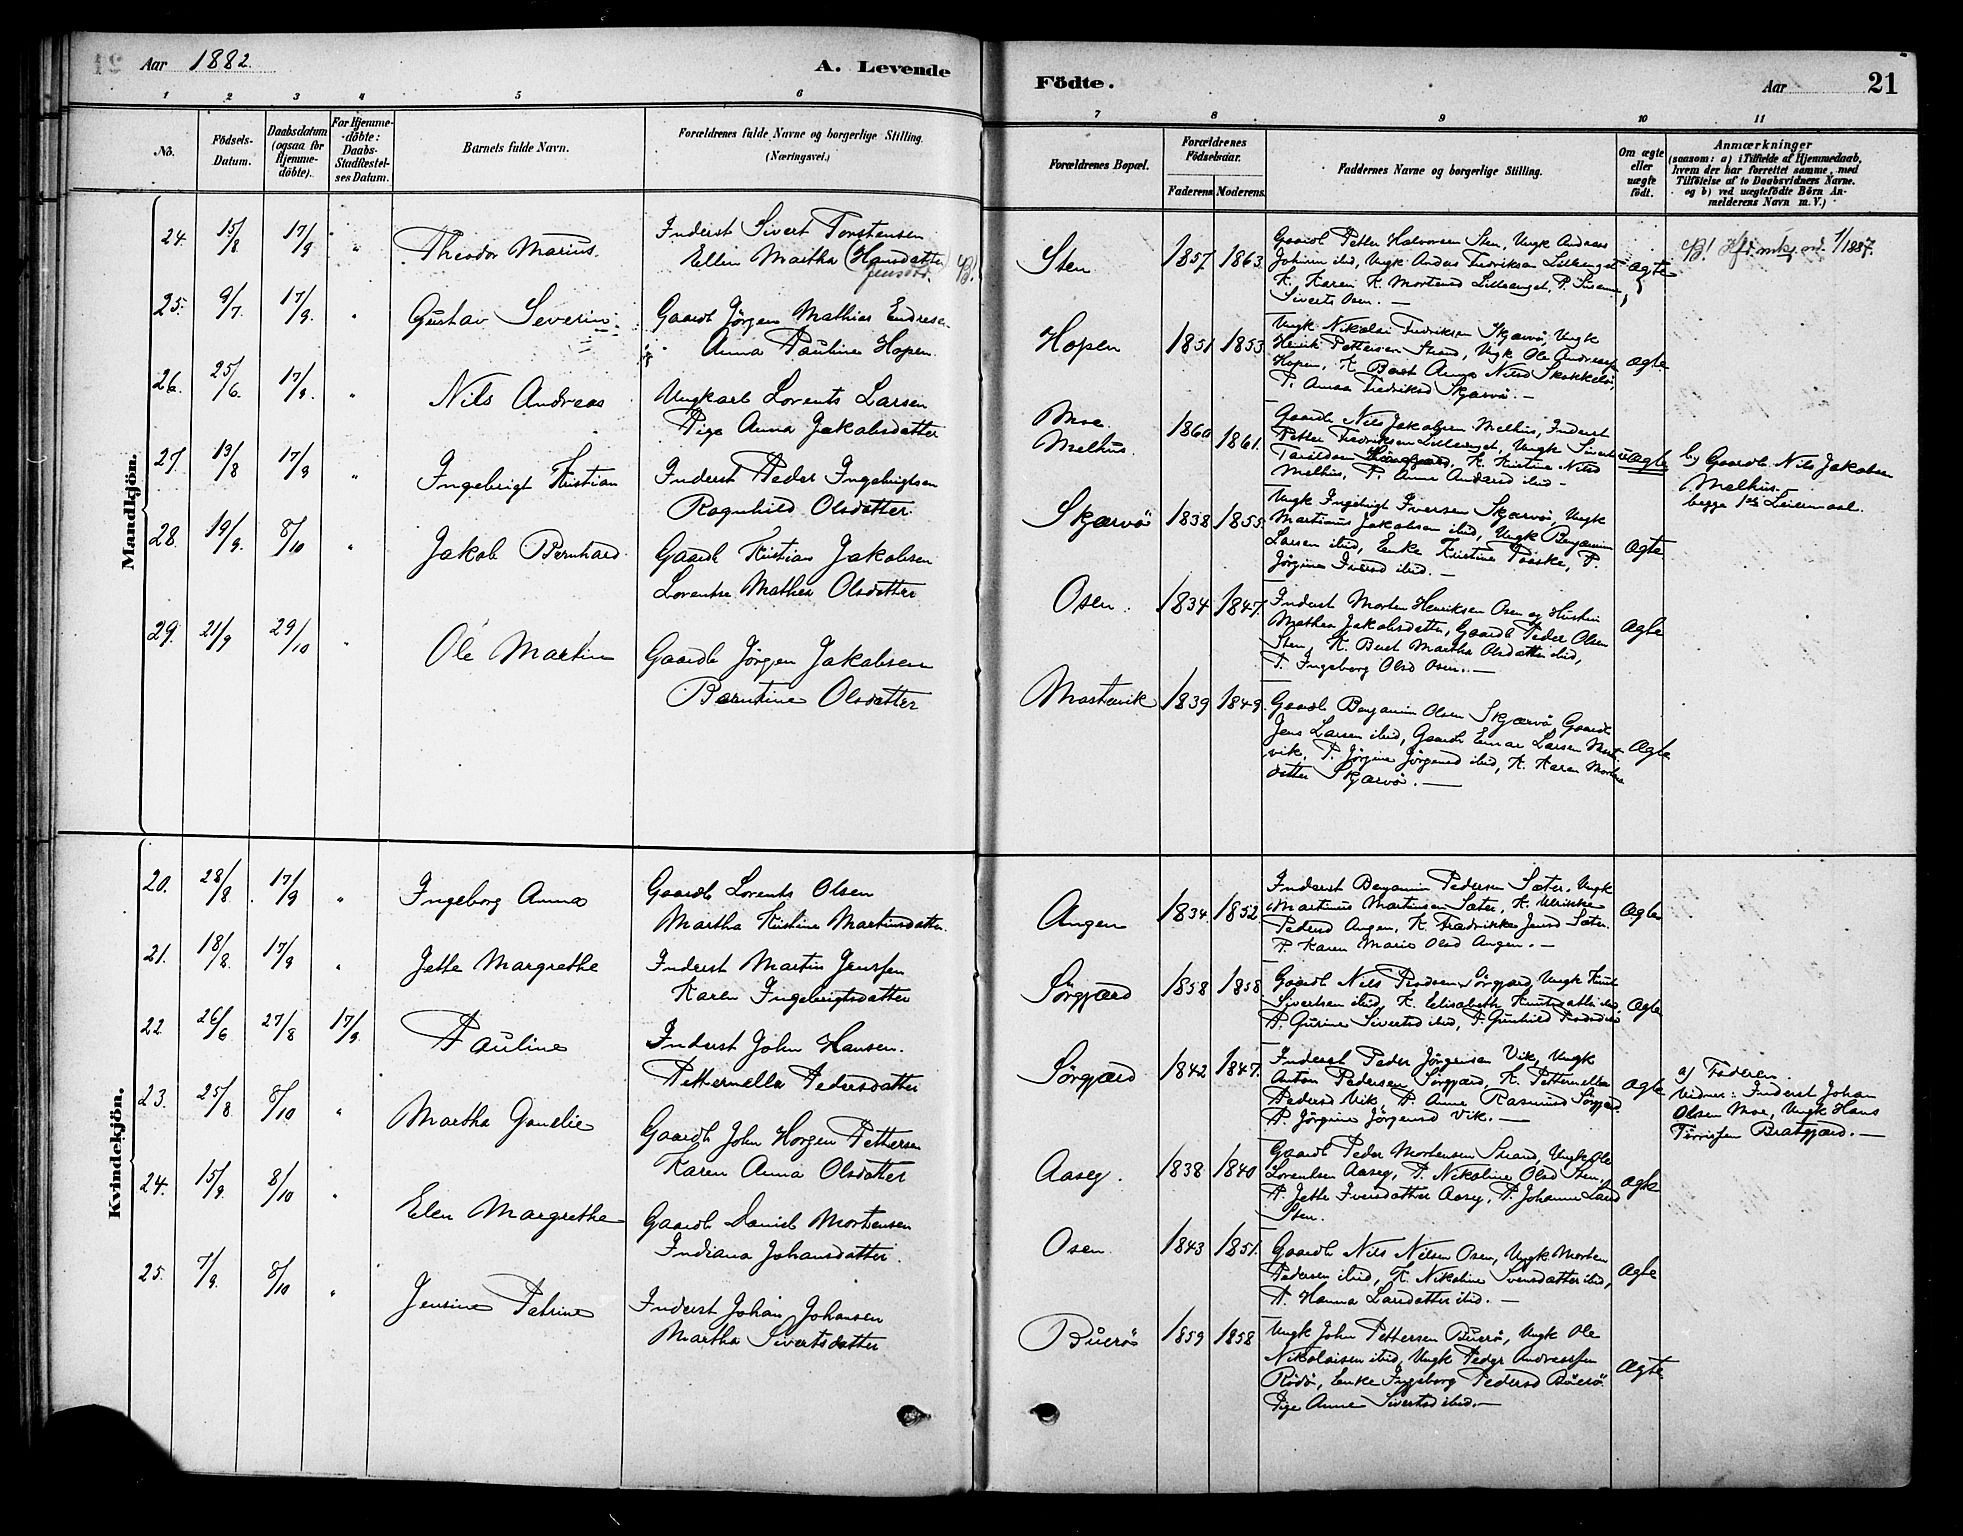 Aar 1882.
A. Levende
1 2 3 4 5 6
No.
Födsels-
Datum.
Daabsdatum
(ogsaa for
Hjemme-
döbte).
For Hjemme-
döbte:
Daabs-
Stadfestel-
ses Datum.
Barnets fulde Navn.
Forældrenes fulde Navne og borgerlige Stilling.
(Næringsvei.)
Mandkjön.
24. 15/8 17/9 " Theodor Marius. Inderst Sivert Torstensen
Ellen Martha (Hansdatter
Jensdtd.
25. 9/7 17/9. " Gustav Severin Gaardb Jörgen Mathias Endresen
Anna Pauline Hopen.
26. 25/6. 17/9. " Nils Andreas Ungkarl Lorents Larsen
Pige Anna Jakobsdatter
27. 13/8 17/9 " Ingebrigt Kristian Inderst Peder Ingebrigtsen
Ragnhild Olsdatter.
28. 19/9. 8/10 " Jakob Bernhard Gaardb Kristian Jakobsen
Lorentse Mathea Olsdatter
29. 21/9 29/10 " Ole Martin Gaardb Jörgen Jakobsen
Berntine Olsdatter
Kvindekjön.
20. 28/8 17/9 " Ingeborg Anna Gaardb Lorents Olsen
Martha Kristine Martinsdatter.
21. 18/8. 17/9 " Jette Margrethe Inderst Martin Jenssen
Karen Ingebrigtsdatter
22 26/6 27/8 17/9. Pauline Inderst John Hansen.
Petternella Pedersdatter
23. 25/8 8/10 " Martha Gunelie Gaardb John Horgen Pettersen
Karen Anna Olsdatter
24. 15/9. 8/10 " Elen Margrethe Gaardb Daniel Mortensen
Indiana Johansdatter.
25. 7/9. 8/10 " Jensine Petrine Inderst Johan Johansen
Martha Sivertsdatter
Födte.
Aar
21
7 8 9 10 11
Forældrenes Bopæl.
Forældrenes
Födselsaar.
Faderens. Moderens.
Faddernes Navne og borgerlige Stilling.
Om ægte
eller
uægte
födt.
Anmærkninger
(saasom: a) i Tilfælde af Hjemmedaab,
hvem der har forrettet samme, med
Tilföielse af to Daabsvidners Navne.
og b) ved uægtefödte Börn An-
melderens Navn m. V.)
Sten 1857 1863. Gaardb Petter Halvorsen Sten, Ungk Andreas
Johnsen ibid, Ungk Anders Fredriksen Lilleenget
K. Karen K. Mortensd Lilleenget, P.
Siverts Osen. —
ægte
1/1887.
Hopen 1851 1853 Ungk Nikolai Fredriksen Skjærvö, Ungk
Henrik Pettersen Strand, Ungk Ole Andreass
Hopen, K. Beret Anna Nilsd
P. Anna Fredriksd Skjærvö. —
ægte
Moe.
Melhus. 1860 1861. Gaardb Nils Jakobsen Melhus, Inderst
Petter Fredriksen Lilleenget, Ungk Sivert
K. Kristine Nilsd
Melhus, P. Anne Andersd ibid —
uægte
b) Gaardb Nils Jakobsen
Melhus.
begge 1ste Leiermaal.
Skjærvö 1838 1855. Ungk Ingebrigt Iversen Skjærvö, Ungk
Martinus Jakobsen ibid, Ungk Benjamin
Larsen ibid, Enke Kristine Paaske, P.
Jörgine Iversd ibid. —
ægte
Osen. 1834 1847. Inderst Morten Henriksen Osen og Hustru
Mathea Jakobsdatter, Gaardb Peder Olsen
Sten, K. Beret Martha Olsdatter ibid,
P. Ingeborg Olsd Osen. —
ægte
Mastervik 1839 1849. Gaardb Benjamin Olsen Skjærvö, Gaardb
Jens Larsen ibid, Gaardb Einar Larsen Master-
vik, P. Jörgine Jörgensd ibid, K. Karen Mortens
datter Skjærvö. —
ægte
Angen 1834. 1852 Inderst Benjamin Pedersen Sæter, Ungk
Martinus Martinsen Sæter, K. Ulrikke
Pedersd Angen, K. Fredrikke Jensd Sæter.
P. Karen Marie Olsd Angen. —
ægte
Sörgjærd 1858 1858 Gaardb Nils Sörgjærd, Ungk Knut
Sivertsen ibid, K. Elisabeth Knutsdatter ibid,
P. Gurine Sivertsd ibid, P. Gunhild
ægte
Sörgjærd 1842 1847. Inderst Peder Jörgensen Vik, Ungk
Anton Pedersen Sörgjærd, K. Petternella
Pedersd Vik, P. Anne Rasmusd Sörgjærd.
P. Jörgine Jörgensd Vik. —
ægte
a) Faderen.
Vidner: Inderst Johan
Olsen Moe, Ungk Hans
Törrissen Bratgjærd. —
Aaseg. 1838 1840 Gaardb Peder Mortensen Strand, Ungk Ole
Lorentsen Aaseg, P. Nikoline Olsd Sten,
P. Jette Iversdatter Aaseg, P. Johanna Larsd
Sten.
ægte
Osen. 1843 1851. Gaardb Nils Nilsen Osen, Ungk Morten
Pedersen ibid, K. Nikoline Svensdatter ibid,
P. Hanna Larsdatter ibid. —
ægte
Buerö 1859 1858 Ungk John Pettersen Buerö, Ungk Ole
Nikolaisen ibid, Ungk Peder Andreassen
Rödö, Enke Ingeborg Pedersd Buerö
Pige Anne Sivertsd ibid. —
ægte